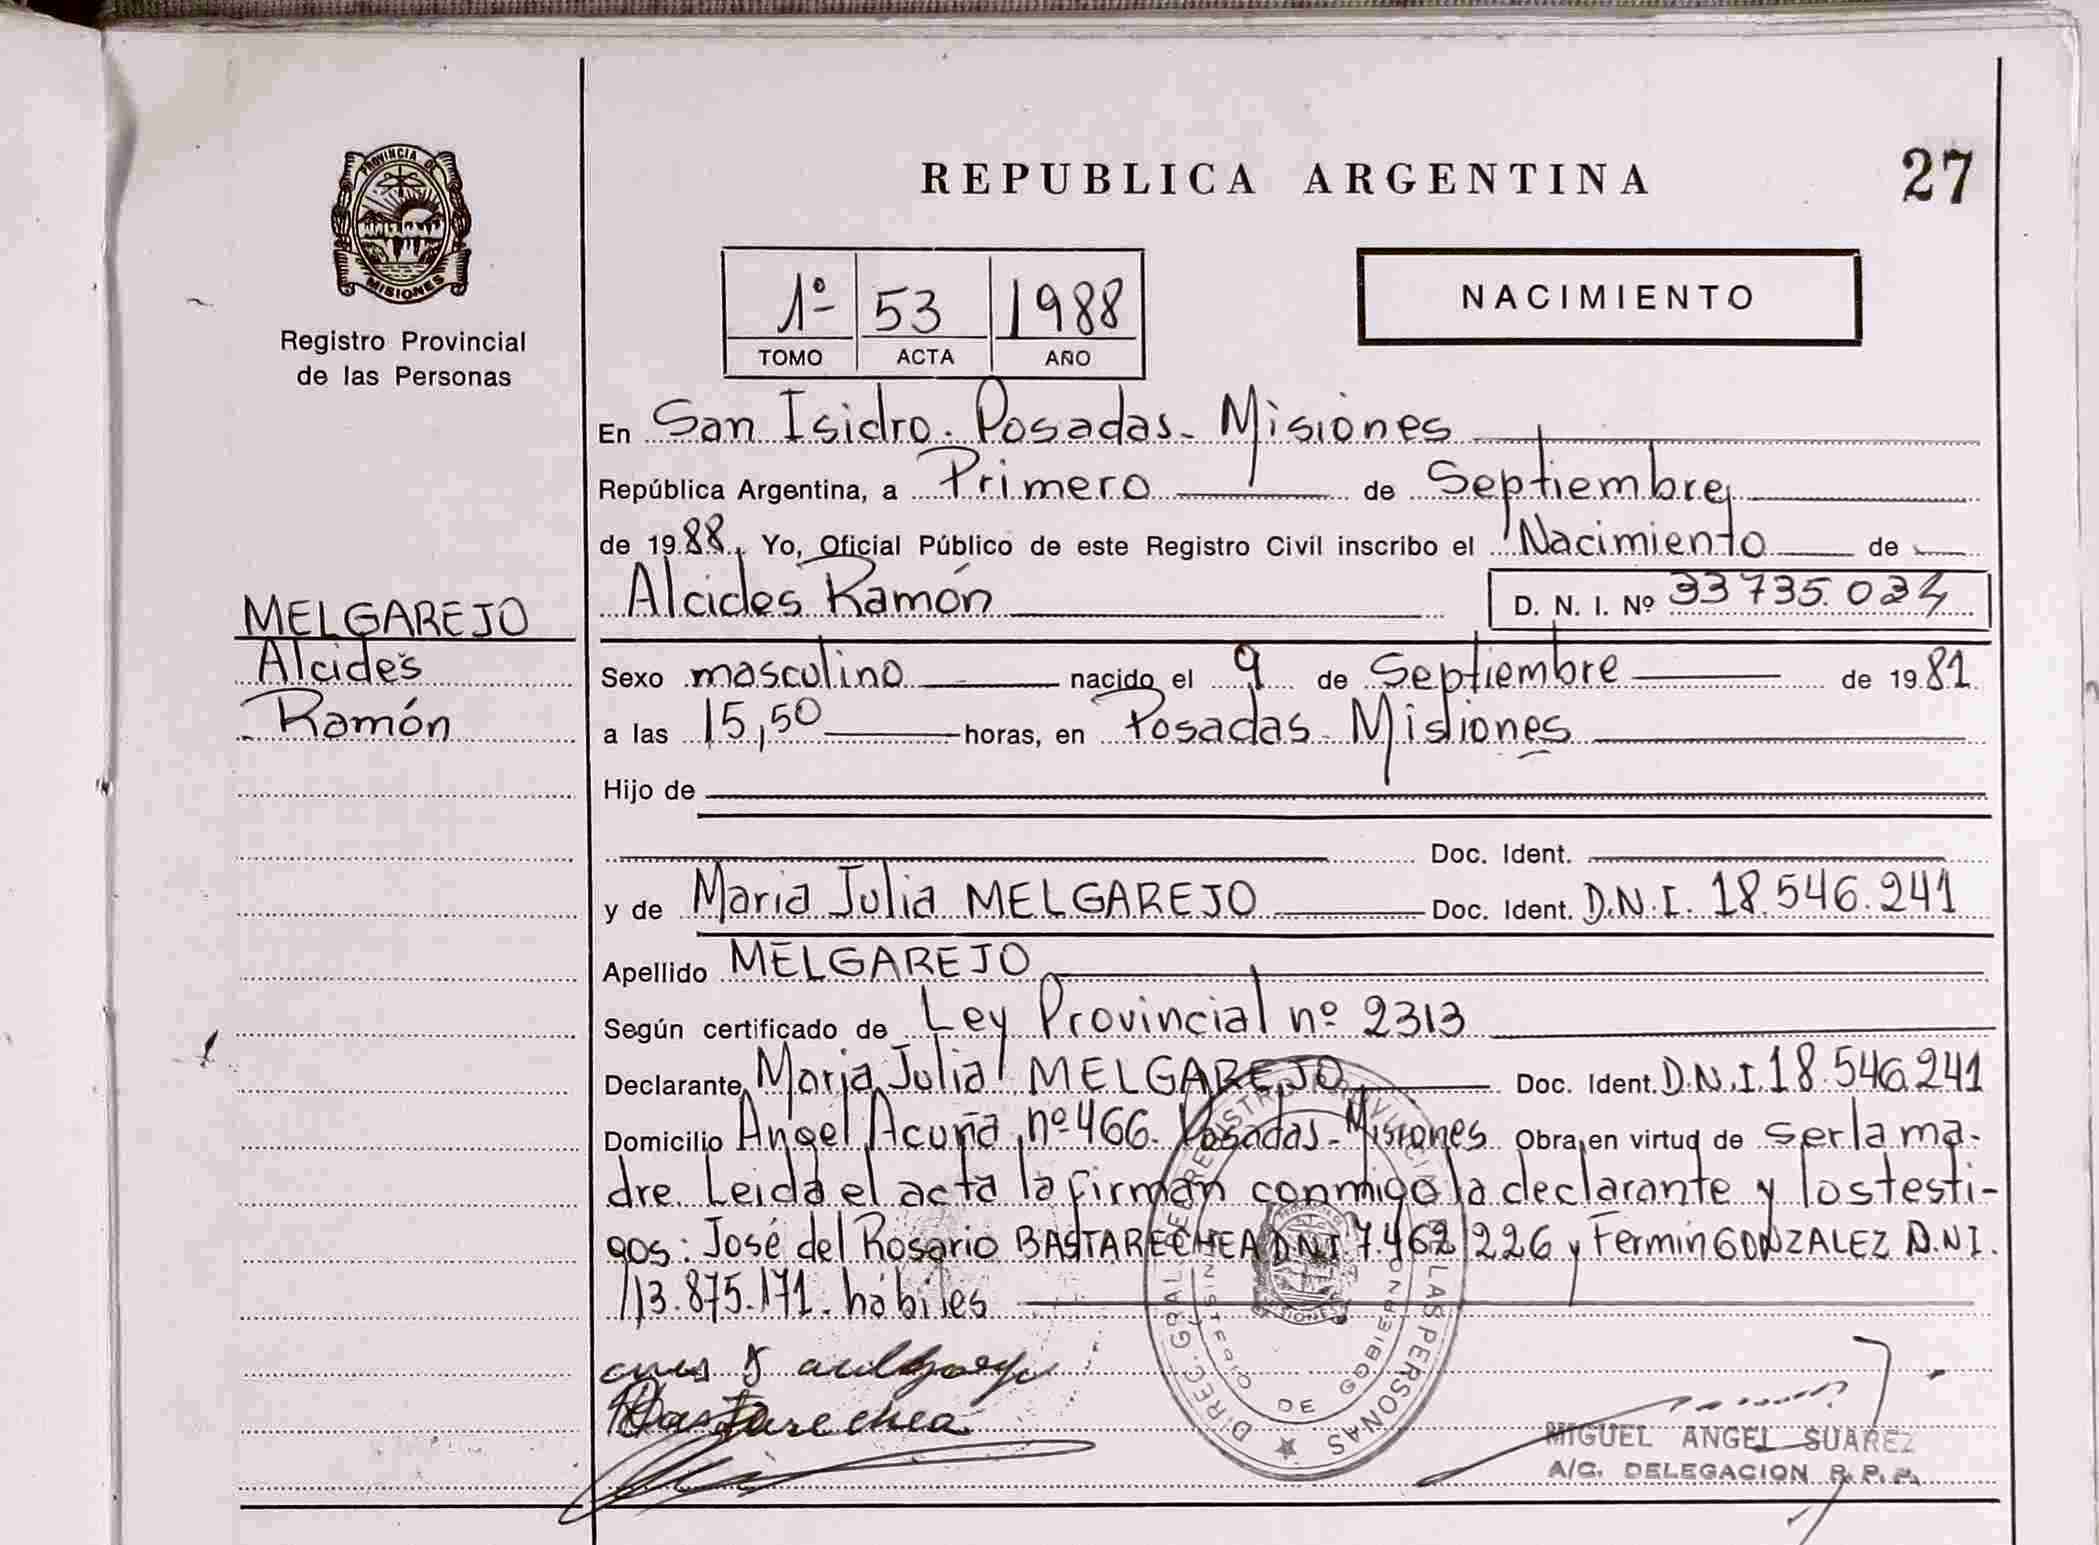 PROVINCIA DE
MISIONES
Registro Provincial
de las Personas
REPUBLICA ARGENTINA
27
1º 53 1988
TOMO ACTA AÑO
NACIMIENTO
En San Isidro. Posadas - Misiones
República Argentina, a Primero de Septiembre
de 1988. Yo, Oficial Público de este Registro Civil inscribo el Nacimiento de
Alcides Ramón D. N. I. Nº 33735.034
MELGAREJO
Alcides
Ramón
Sexo masculino nacido el 9 de Septiembre de 1981
a las 15,50 horas, en Posadas - Misiones
Hijo de
Doc. Ident.
y de Maria Julia MELGAREJO Doc. Ident. D.N.I. 18.546.241
Apellido MELGAREJO
Según certificado de Ley Provincial nº 2313
Declarante Maria Julia MELGAREJO Doc. Ident. D.N.I. 18.546.241
Domicilio Angel Acuña nº 466. Posadas - Misiones Obra en virtud de ser la ma-
dre. Leida el acta la firman conmigo la declarante y los testi-
gos: José del Rosario BASTARECHEA DNI. 7.462.226 y Fermin GONZALEZ D.N.I.
13.875.171. hábiles
Bastarechea
DIREC. GRAL. DE REGISTRO PROVINCIAL DE LAS PERSONAS
MINISTERIO DE GOBIERNO
MIGUEL ANGEL SUAREZ
A/C. DELEGACION R. P. P.